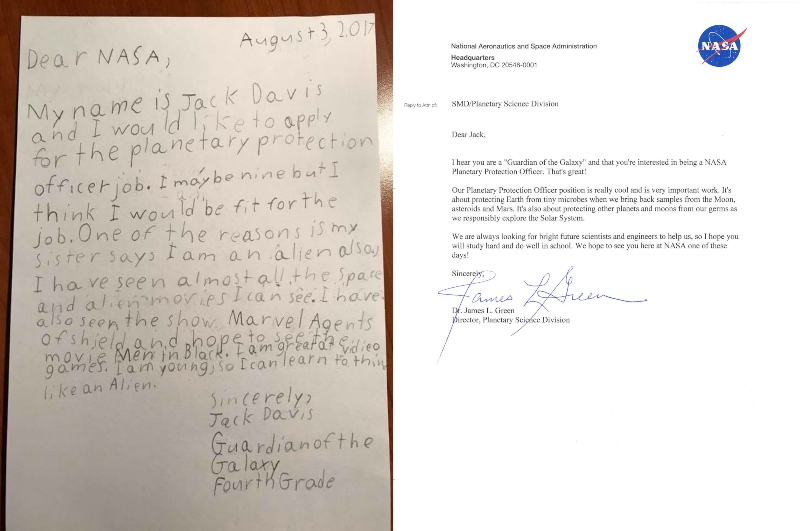 August 3, 2017
Dear NASA,
My name is Jack Davis
and I would like to apply
for the planetary protection
officer job. I may be nine but I
think I would be fit for the
job. One of the reasons is my
sister says I am an alien also,
I have seen almost all the space
and alien movies I can see. I have
also seen the show Marvel Agents
of shield and hope to see the
movie Men in Black. I am great at vidieo
games. I am young, so I can learn to think
like an Alien.
Sincerely,
Jack Davis
Guardian of the
Galaxy
Fourth Grade
National Aeronautics and Space Administration
Headquarters
Washington, DC 20546-0001
NASA
Reply to Attn of:
SMD/Planetary Science Division
Dear Jack,
I hear you are a "Guardian of the Galaxy" and that you're interested in being a NASA
Planetary Protection Officer. That's great!
Our Planetary Protection Officer position is really cool and is very important work. It's
about protecting Earth from tiny microbes when we bring back samples from the Moon,
asteroids and Mars. It's also about protecting other planets and moons from our germs as
we responsibly explore the Solar System.
We are always looking for bright future scientists and engineers to help us, so I hope you
will study hard and do well in school. We hope to see you here at NASA one of these
days!
Sincerely,
James L Green
Dr. James L. Green
Director, Planetary Science Division